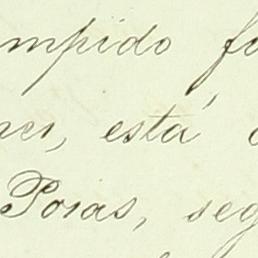 mpido fo
, está
Poras, seg